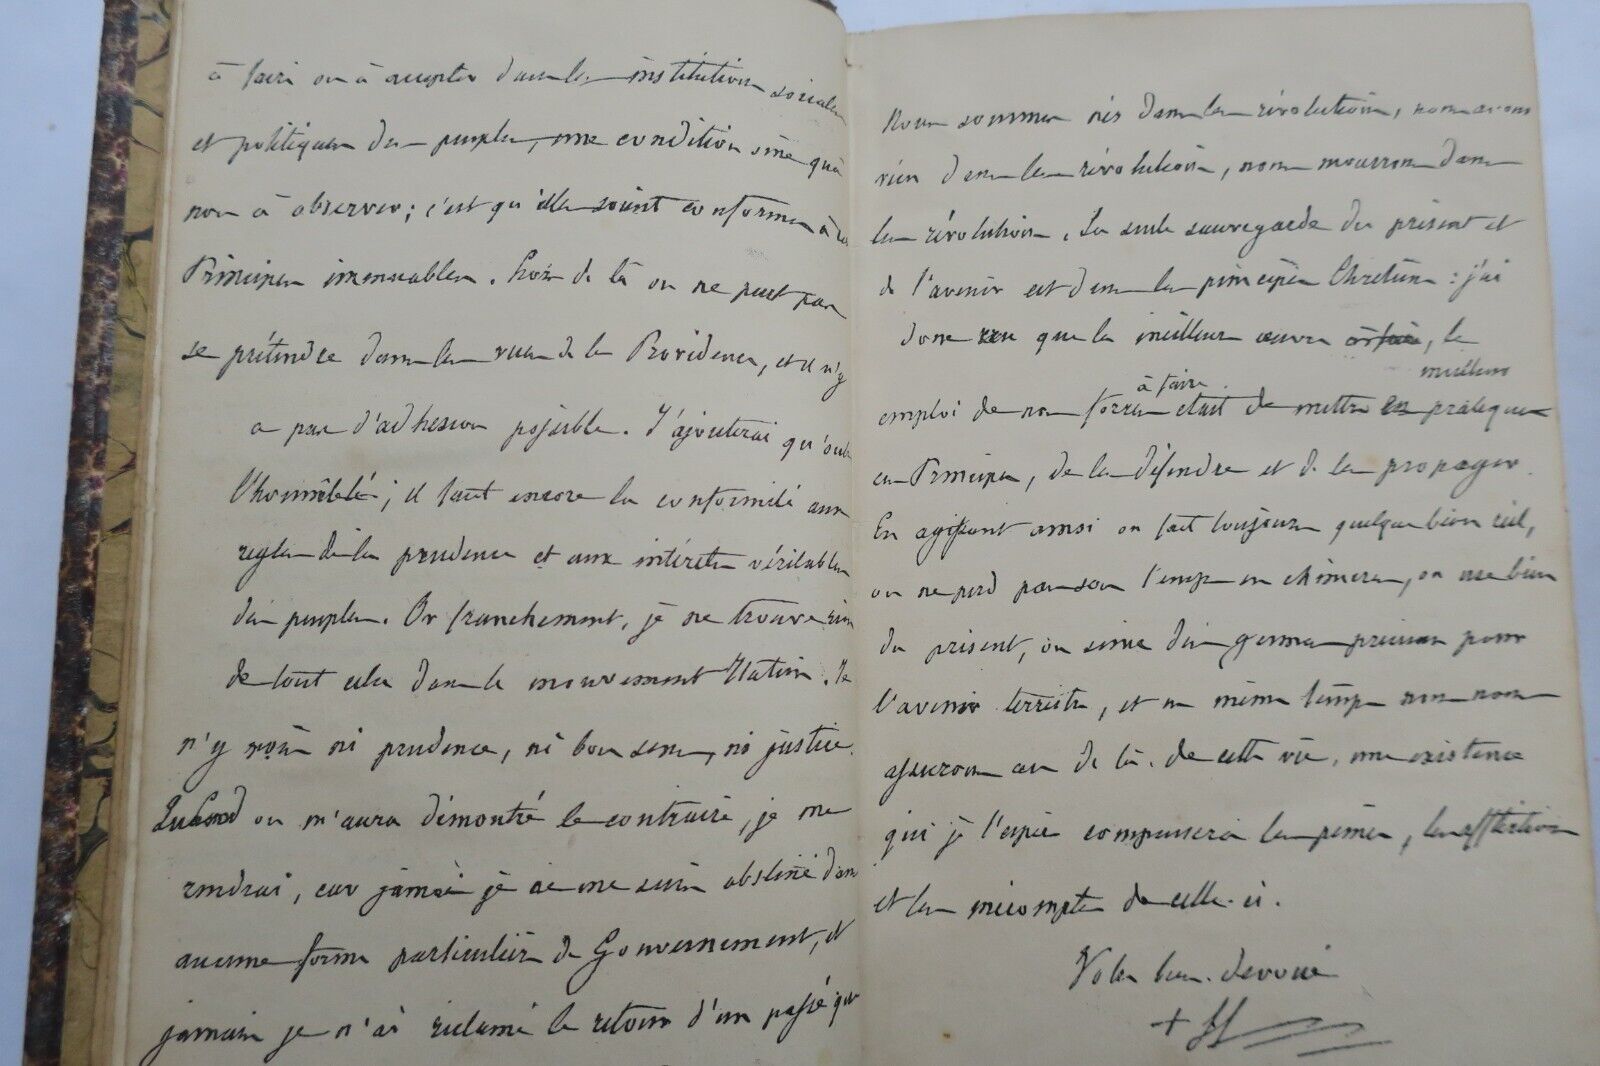 à faire ou à accepter dans les institutions sociales
et politiques des peuples, une condition sine quà
non à observer; c'est qu'elles soient conformes à ces
Principes immuables. Hors de là on ne peut pas
se prétendre dans les vues de la Providence, et il n'y
a pas d'adhésion possible. J'ajouterai qu'outre
l'honnêteté; il faut encore la conformité aux
regles de la prudence et aux intérêts véritables
des peuples. Or franchement, je ne trouve rien
de tout cela dans le mouvement Italien. Je
n'y vois ni prudence, ni bon sens, ni justice.
Quand on m'aura démontré le contraire, je me
rendrai, car jamais je ne me suis obstiné dans
aucune forme particulière de Gouvernement, et
jamais je n'ai réclamé le retour d'un passé que
Nous sommes nés dans la révolution, nous avons
vécu dans la révolution, nous mourrons dans
la révolution. La seule sauvegarde du présent et
de l'avenir est dans les principes Chrétiens : j'ai
donc cru que la meilleure œuvre à faire, le
meilleur
à faire
emploi de nos forces était de mettre en pratique
ces Principes, de les défendre et de les propager.
En agissant ainsi on fait toujours quelque bien réel,
on ne perd pas son temps en chimères, on use bien
du présent, on sème des germes précieux pour
l'avenir terrestre, et en même temps nous nous
assurons au de là de cette vie, une existence
qui je l'espère compensera les peines, les afflictions
et les mécomptes de celle-ci.
Votre bien dévoué
+